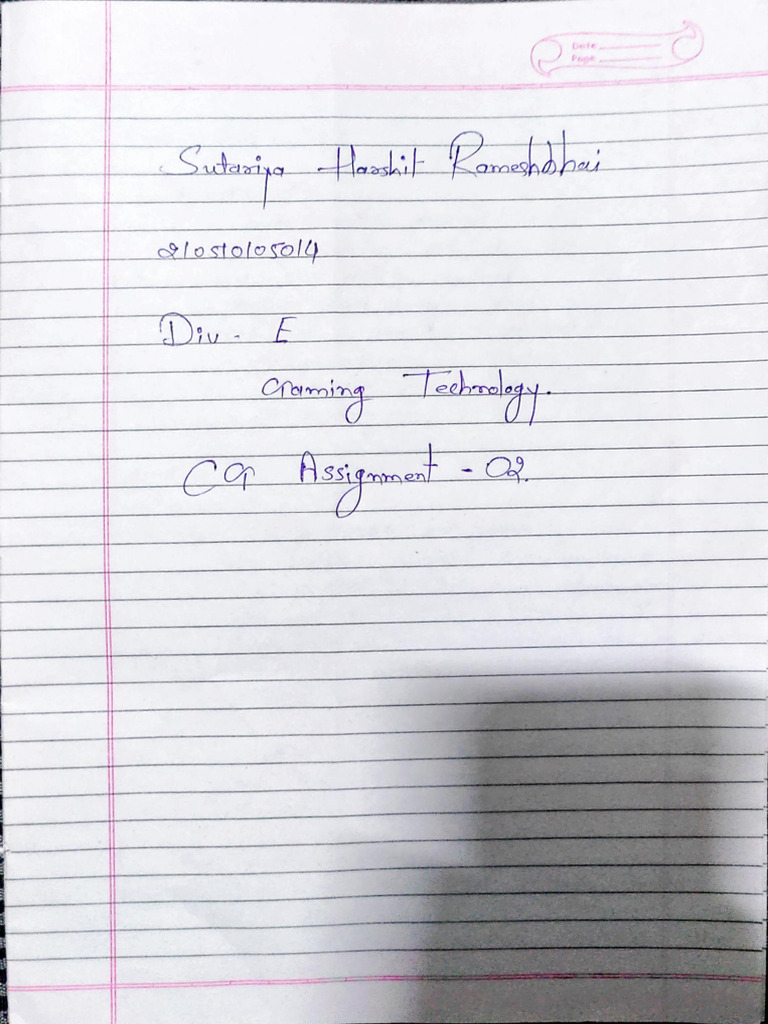 Date
Page
Sutariya Harshit Rameshbhai
210510105014
Div - E
Gaming Technology.
CG Assignment - 02.